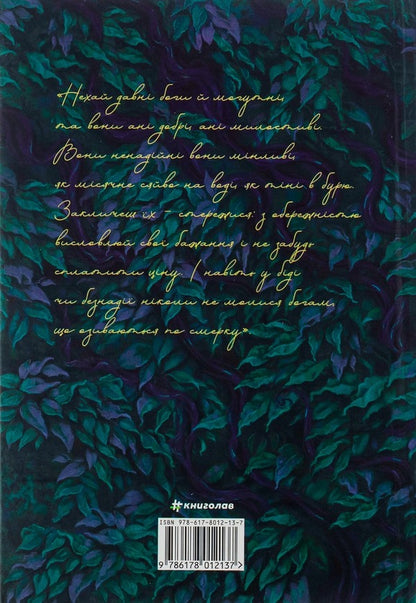 «Нехай давні боги й могутні,
та вони ані добрі, ані милостиві.
Вони ненадійні, вони мінливі,
як місячне сяйво на воді, як тіні в бурю.
Закличеш їх – стережися: з обережністю
висловлюй свої бажання і не забудь
сплатити ціну. І навіть у біді
чи безнадії ніколи не молися богам,
що озиваються по смерку».
#книголав
ISBN 978-617-8012-13-7
9 786178 012137 >